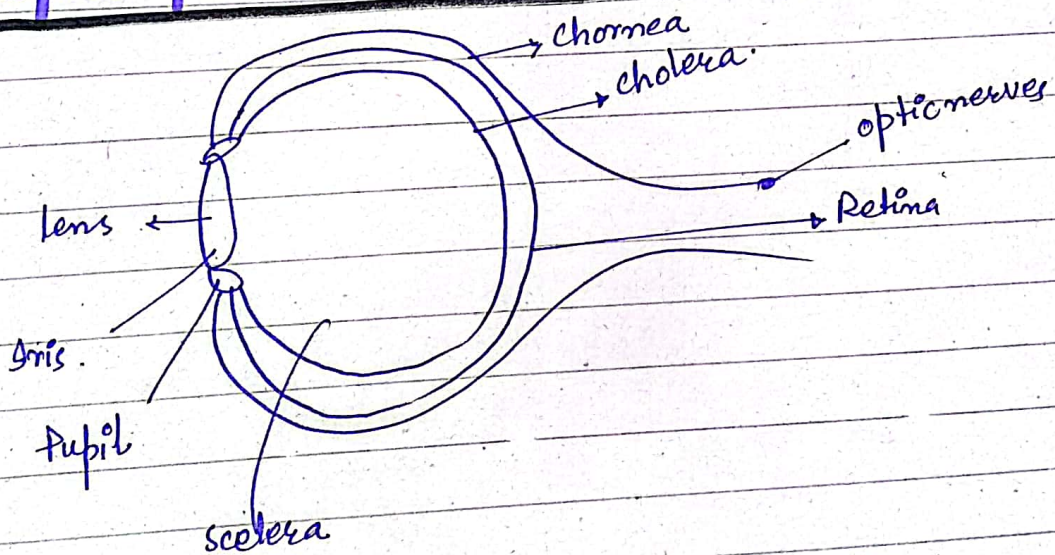 Chornea
cholera.
opticnerves
Retina
lens
Iris.
Pupil
scelera